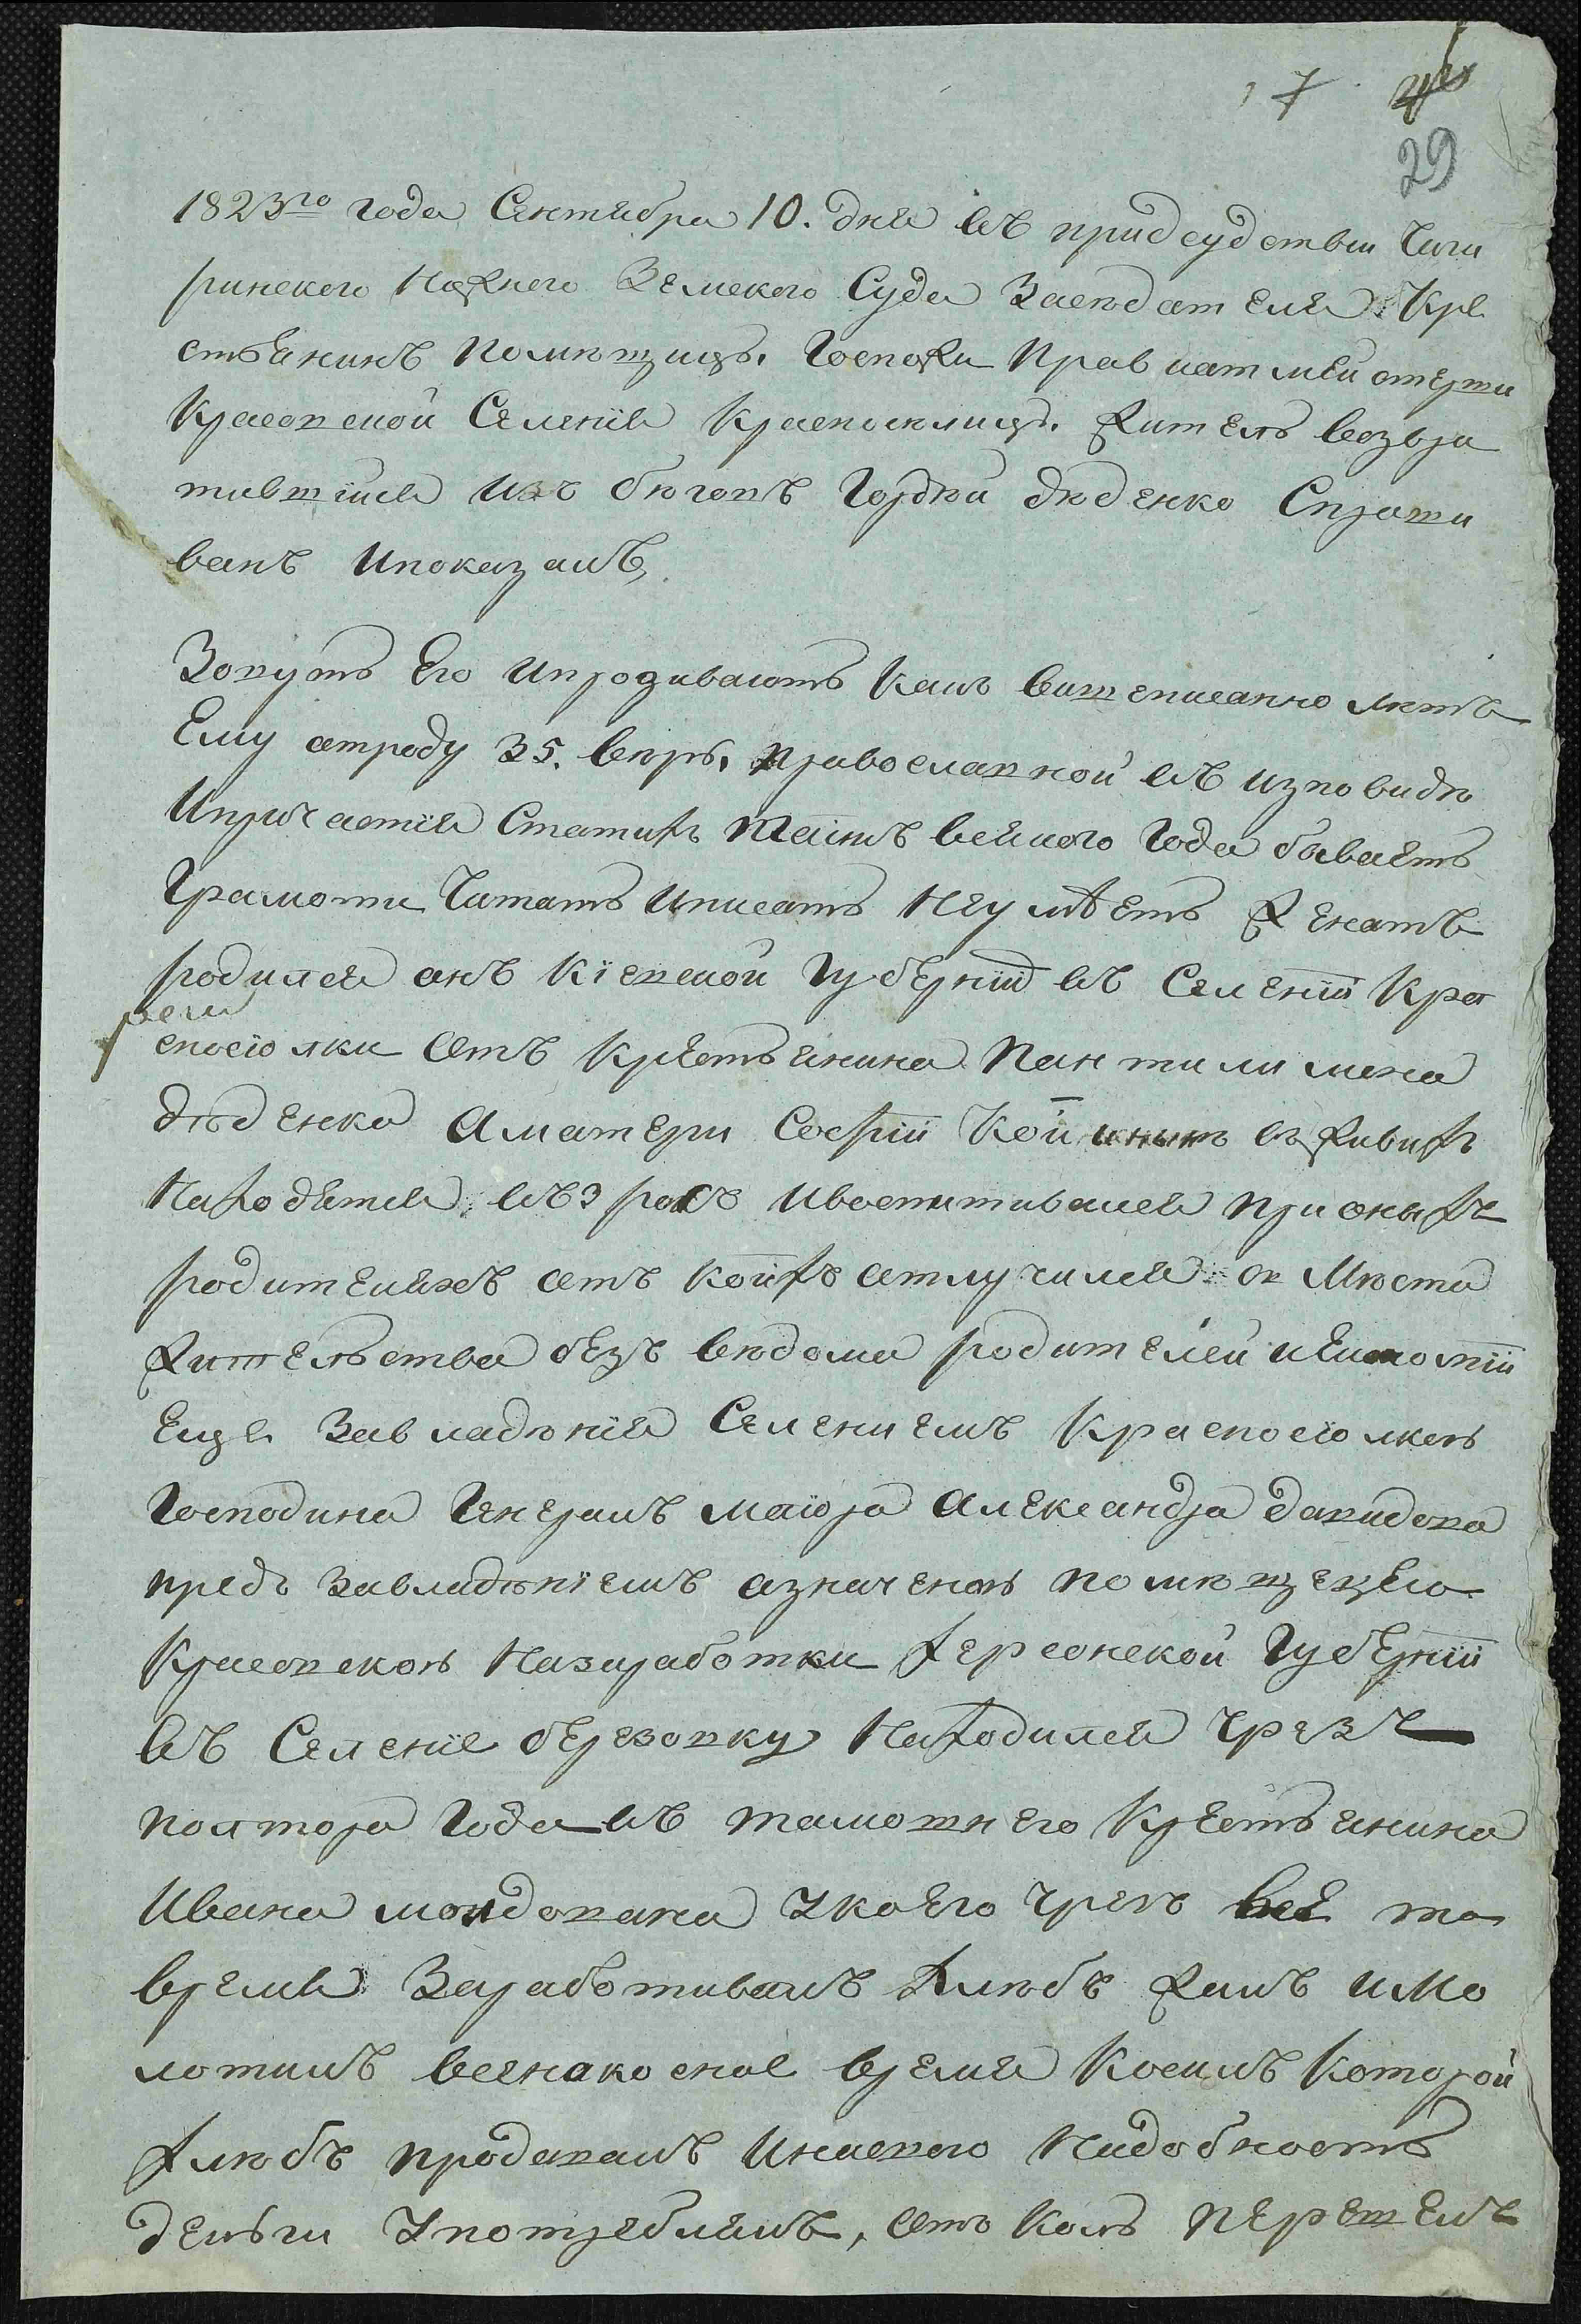 17
29
1823го года Сентября 10. дня въ придсудствіи Чиги
ринского Нижнего Земского Суда Заседателя Кре
стьянинъ помѣщицѣ. Госпожи
Красовской Селенія Жителъ возвра
тившійся Изъ бѣговъ Гордѣй Дѣденко Спраши
ванъ Ипоказалъ,
Зовутъ Его Ипрозиваютъ Какъ вишеписанно лѣтъ
Ему отроду 35. вѣрѣ, православной въ изповидѣ
Ипричастія Статихъ Таинъ всякого Года бываетъ
Грамоти Читать Иписать Неумѣетъ Женатъ
родился онъ Кіевской Губерніи въ Селеніи Кра
сносіолки Отъ Крестьянина Пантилимона
Дѣденка Аматери Софіи Кои въживихъ
Находятся, възросъ Ивоспитивался при оныхъ
родителяхъ отъ коихъ отлучился съ Мѣста
Жительства безъ вѣдома родителей
Еще Завладѣнія Селениемъ Красносіолкою
Господина Генералъ маіора Александра Давидова
предъ Завладѣніемъ означеною помѣщецею
Красовскою Назаработки Херсонской Губерніи
въ Селеніе березовку Находился Чрезъ
полтора Года въ тамошнего Крестьянина
Ивана молдована Укоего Чрезъ всё то
время Зарабативалъ Хлѣбъ Жалъ имо
лотилъ всенакосное время Косилъ Которой
Хлѣбъ продавалъ Инасвою Надобность
деньги Употреблялъ, Отъ коль перешелъ